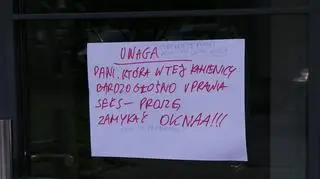 UWAGA
PANI, KTÓRA W TEJ KAMIENICY
BARDZO GŁOŚNO UPRAWIA
SEKS – PROSZĘ
ZAMYKAĆ OKNAA!!!